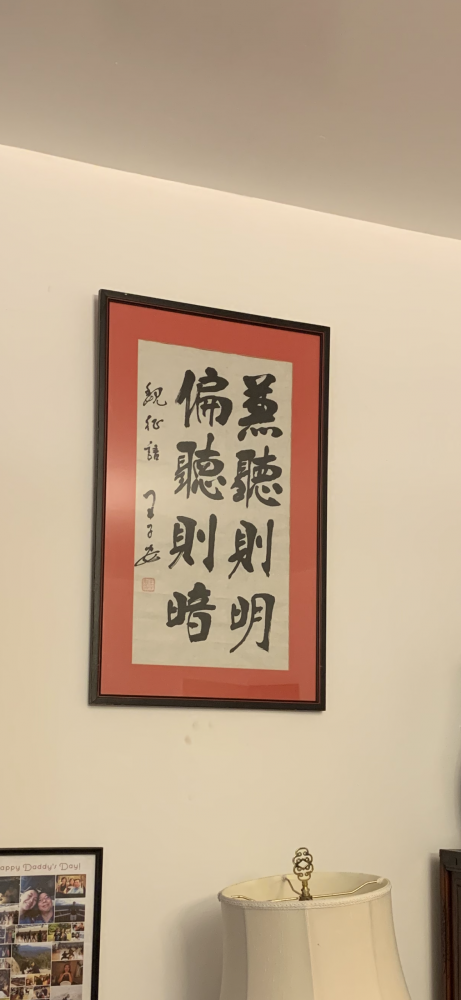 兼聽則明
偏聽則暗
魏徵語
Happy Daddy's Day!